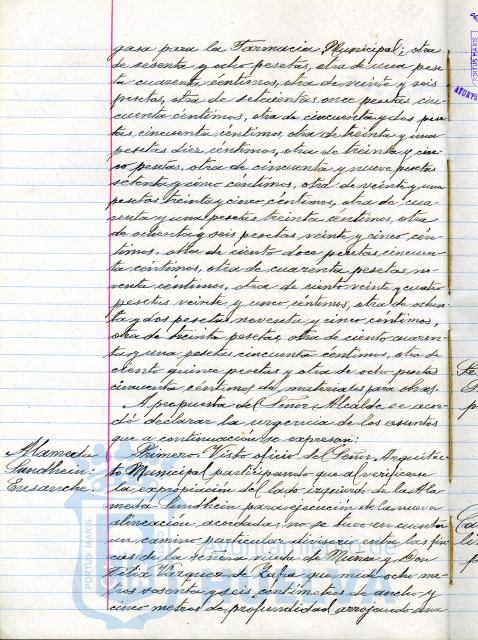 gasa para la Farmacia Municipal; otra
de sesenta y ocho pesetas, otra de una pese
ta cuarenta céntimos, otra de veinte y seis
pesetas, otra de setecientas once pesetas cin
cuenta céntimos, otra de cincuenta y dos pese
tas cincuenta céntimos, otra de treinta y una
pesetas diez céntimos, otra de treinta y cin
co pesetas, otra de cincuenta y nueve pesetas
setenta y cinco céntimos, otra de veinte y una
pesetas treinta y cinco céntimos, otra de cua
renta y una pesetas treinta céntimos, otra
de ochenta y seis pesetas, veinte y cinco cén
timos, otra de ciento doce pesetas cincuen
ta céntimos, otra de cuarenta pesetas no
venta céntimos, otra de ciento veinte y cuatro
pesetas veinte y cinco céntimos, otra de ochen
ta y dos pesetas noventa y cinco céntimos,
otra de treinta pesetas, otra de ciento cuaren
ta y una pesetas cincuenta céntimos, otra de
ciento quince pesetas y otra de ocho pesetas
cincuenta céntimos de materiales para obras.
A propuesta del Señor Alcalde se acor
dó declarar la urgencia de los asuntos
que a continuación se expresan:
Alameda
Sundhein:
Ensanche:
Primero: Visto oficio del Señor Arquitec
to Municipal participando que al verificarse
la expropiación del lado izquierdo de la Ala
meda Sundhein para ejecución de la nueva
alineación acordada, no se tuvo en cuenta
un camino particular divisorio entre las fin
cas de la Señora viuda de Mora y Don
Félix Vázquez de Zafra que mide ocho me
tros sesenta y seis centímetros de ancho y
cinco metros de profundidad arrojando una
PORTUS MARIS
Ayuntamiento de
HUELVA
PORTUS MARIS